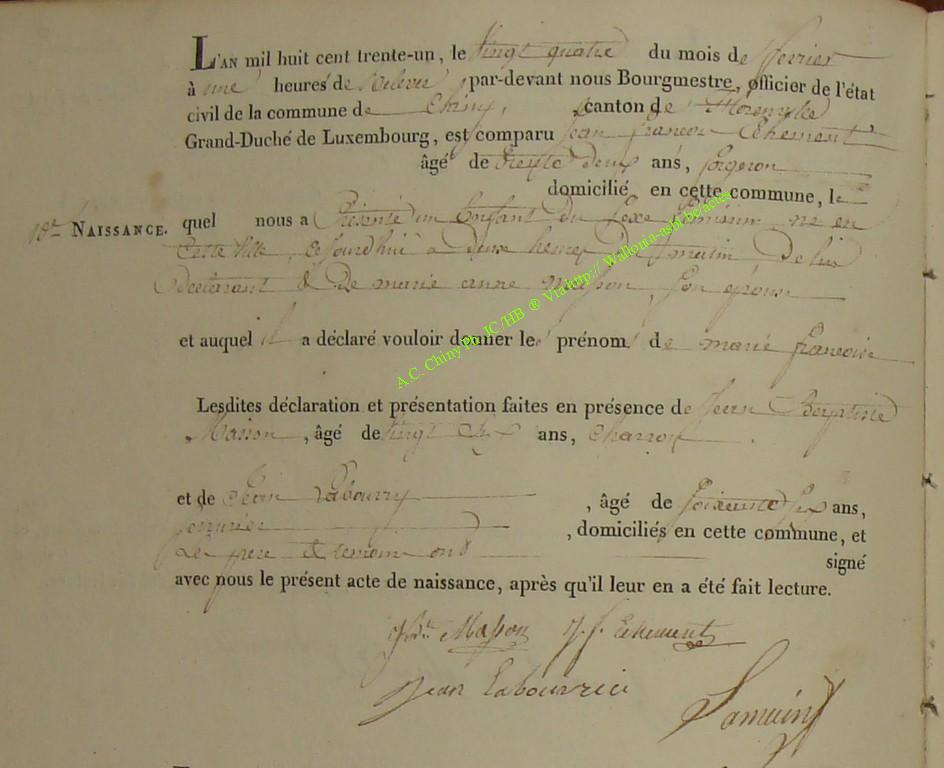 L'AN mil huit cent trente-un, le vingt quatre du mois de fevrier
à une heures de relevée, par-devant nous Bourgmestre, officier de l'état
civil de la commune de Chiny, canton de
Grand-Duché de Luxembourg, est comparu Jean françois Ethement
âgé de trente deux ans, forgeron
domicilié en cette commune, le
18e NAISSANCE. quel nous a présenté un Enfant du Sexe féminin, né en
cette ville, cejourdhui à deux heures du matin, de lui
déclarant & de marie anne Masson, son épouse
et auquel il a déclaré vouloir donner les prénoms de marie françoise
Lesdites déclaration et présentation faites en présence de Jean Baptiste
Masson, âgé de vingt six ans, charron
et de Jean Labouvry, âgé de soixante six ans,
, domiciliés en cette commune, et
Le père & témoin ont signé
avec nous le présent acte de naissance, après qu'il leur en a été fait lecture.
Jbte Masson J. f. Ethement
Jean Labouvrie
A.C. Chiny Ph JC/HB ® Via http:// Wallonia-asbl.be/actes